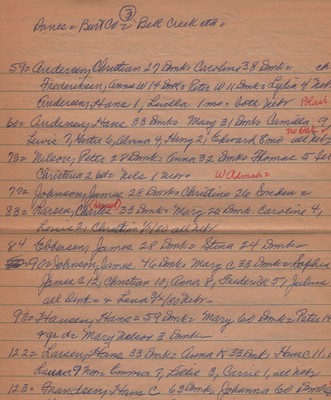 ③
Danes = Burt Co = Bell Creek etc =
59 = Andersen, Christian 27 Dmk = Caroline 38 Dmk = ch
Frederiksen, Anna W 14 Dmk = Peter W 11 Dmk = Lydia 4 Nebr
Andersen, Hans 1, Luella 1 mo = both Nebr Blair
60 = Andersen, Hans 33 Dmk = Mary 31 Dmk = Camilla 9
Lewis 7, 6, Alvina 4, Henry 2, Edward 8 mo all Nebr
73 = Nelson, Peter 28 Dmk = Anna 32 Dmk = Thomas 5
Christina 2 = Nels 1 Nebr
77 = Johnson, James 28 Dmk = Christina 26 Sweden =
83 = Larsen, Chris 33 Dmk = Mary 20 Dmk = Caroline 4,
Louis 2, Christian /80 all Nebr
84 Ebbesen, James 28 Dmk = Stina 24 Dmk =
90 = Johnson, James 46 Dmk = Mary C 33 Dmk = Sophia
James C 12, Christian 10, Anna 8, Frederik 5,
all Dmk = & Lena /80 Nebr
93 = Hansen, Hans = 59 Dmk = Mary 60 Dmk = Peter
gr d = Mary Nelson 3 Dmk =
122 = Larsen, Hans 33 Dmk = Anna K 33 Dmk = Hans C 11,
9 Emma 7, Lillie 3, Carrie 1, all Nebr
123 = Frandsen, Hans C 63 Dmk = Johanna 60 Dmk